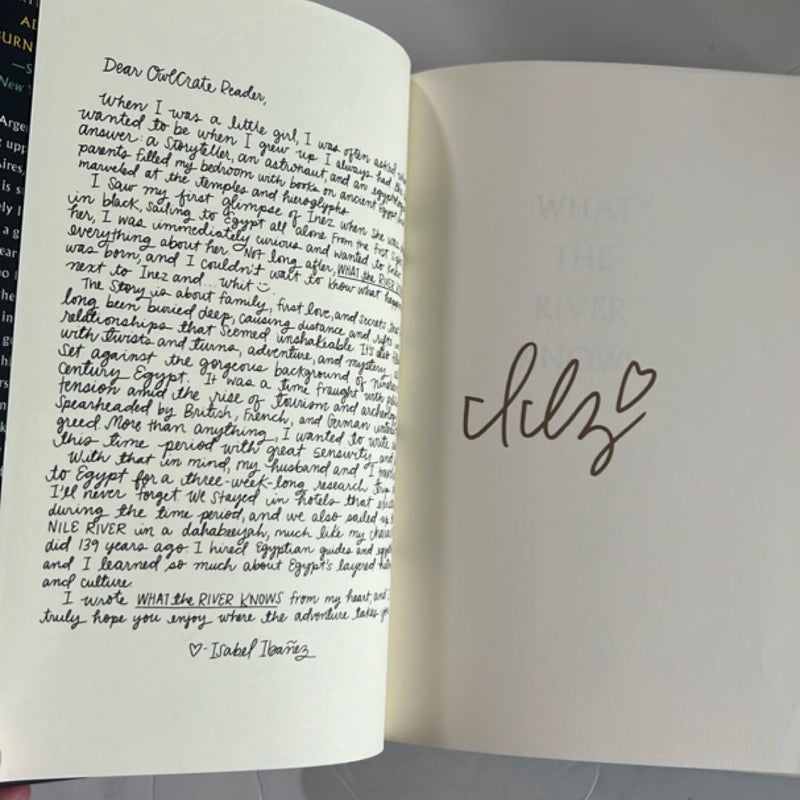 AD
BURN
—S
New
Arge
g upp
Aires,
is s
ely l
a g
ear
he
in
Dear OwlCrate Reader,
When I was a little girl, I was often asked
wanted to be when I grew up I always had
answer: a storyteller, an astronaut, and an
parents filled my bedroom with books on ancient Egypt
marveled at the temples and hieroglyphs
I saw my first glimpse of Inez when she was
in black, sailing to Egypt all alone. From the first
her, I was immediately curious and wanted to
everything about her. Not long after, WHAT the RIVER
was born, and I couldn't wait to know what
next to Inez and... whit
The story is about family, first love, and secrets
long been buried deep, causing distance and
relationships that seemed unshakeable. It's also
with twists and turns, adventure, and mystery,
set against the gorgeous background of
century Egypt. It was a time fraught with
tension amid the rise of tourism and
spearheaded by British, French, and German
greed. More than anything, I wanted to write
this time period with great sensitivity and
With that in mind, my husband and I
to Egypt for a three-week-long research trip
I'll never forget. We stayed in hotels that
during the time period, and we also sailed
NILE RIVER in a dahabeeyah, much like my
did 139 years ago. I hired Egyptian guides and
and I learned so much about Egypt's layered
and culture.
I wrote WHAT the RIVER KNOWS from my heart, and
truly hope you enjoy where the adventure takes
♡-Isabel Ibañez
WHAT
THE
RIVER
KNOWS